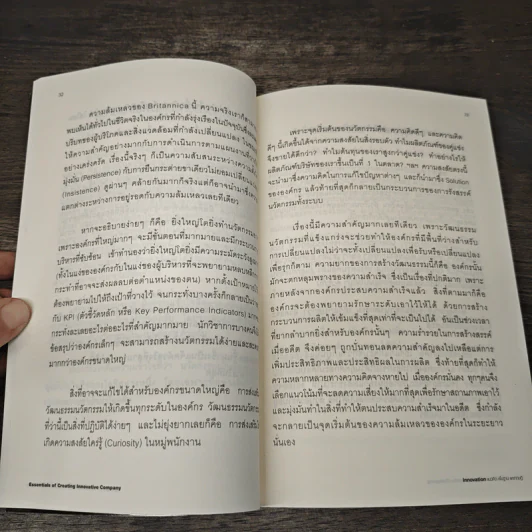 32
ความล้มเหลวของ Britannica นี้ ความจริงเราก็สามารถ
พบเห็นได้ทั่วไปในชีวิตจริงในองค์กรที่กำลังรุ่งเรืองในปัจจุบัน
บริบทของผู้บริโภคและสิ่งแวดล้อมที่กำลังเปลี่ยนแปลง
ให้ความสำคัญอย่างมากกับการดำเนินการตามแผนงาน
อย่างเคร่งครัด เรื่องนี้จริงๆ ก็เป็นความสับสนระหว่างความ
มุ่งมั่น (Persistence) กับการยืนกระต่ายขาเดียวไม่ยอมเปลี่ยน
(Insistence) ดูผ่านๆ คล้ายกันมากก็จริงแต่ก็อาจนำมาซึ่ง
แตกต่างระหว่างการอยู่รอดกับความล้มเหลวเลยทีเดียว
หากจะอธิบายง่ายๆ ก็คือ ยิ่งใหญ่โตยิ่งทำนวัตกรรม
เพราะองค์กรที่ใหญ่มากๆ จะมีขั้นตอนที่มากมายและมีกระบวน
บริหารที่ซับซ้อน เข้าทำนองว่ายิ่งใหญ่โตยิ่งมีความระมัดระวังสูง
(ทั้งในแง่ขององค์กรและในแง่ของผู้บริหารที่จะพยายามหลบหลีก
กระทำที่อาจจะส่งผลลบต่อตำแหน่งของตน) หากตั้งเป้าหมาย
ต้องพยายามไปให้ถึงเป้าที่วางไว้ จนกระทั่งบางครั้งก็กลายเป็นว่า
กับ KPI (ตัวชี้วัดหลัก หรือ Key Performance Indicators) มาก
กระทั่งละเลยอะไรต่ออะไรที่สำคัญมากมาย นักวิชาการบางคน
ข้อสรุปว่าองค์กรเล็กๆ จะสามารถสร้างนวัตกรรมได้ง่ายและสะดวก
มากกว่าองค์กรขนาดใหญ่
สิ่งที่อาจจะแก้ไขได้สำหรับองค์กรขนาดใหญ่คือ การส่งเสริม
วัฒนธรรมนวัตกรรมให้เกิดขึ้นทุกระดับในองค์กร วัฒนธรรมนวัตกรรม
ที่ว่านี้เป็นสิ่งที่ปฏิบัติได้ง่ายๆ และไม่ยุ่งยากเลยก็คือ การส่งเสริมให้
เกิดความสงสัยใคร่รู้ (Curiosity) ในหมู่พนักงาน
Essentials of Creating Innovative Company
เพราะจุดเริ่มต้นของนวัตกรรมคือ ความคิดดีๆ และความคิด
ดีๆ นี้เกิดขึ้นได้จากความสงสัยในสิ่งรอบตัว ทำไมผลิตภัณฑ์ของคู่แข่ง
จึงขายได้ดีกว่า? ทำไมต้นทุนของเราสูงกว่าคู่แข่ง? ทำอย่างไรให้
ผลิตภัณฑ์บริษัทของเราขึ้นเป็นที่ 1 ในตลาด? ฯลฯ ความสงสัยตรงนี้
จะนำมาซึ่งความคิดในการแก้ไขปัญหาต่างๆ และก็นำมาซึ่ง Solution
ขององค์กร แล้วท้ายที่สุดก็กลายเป็นกระบวนการของการรังสรรค์
นวัตกรรมทั้งระบบ
เรื่องนี้มีความสำคัญมากเลยทีเดียว เพราะวัฒนธรรม
นวัตกรรมที่แข็งแกร่งจะช่วยทำให้องค์กรที่มีพื้นที่ว่างสำหรับ
การเปลี่ยนแปลงไม่ว่าจะทั้งเปลี่ยนแปลงเพื่อรับหรือเปลี่ยนแปลง
เพื่อรุกก็ตาม ความยากของการสร้างวัฒนธรรมนี้ก็คือ องค์กรนั้น
มักจะตกหลุมพรางของความสำเร็จ ซึ่งเป็นเรื่องที่ปกติมาก เพราะ
ภายหลังจากองค์กรประสบความสำเร็จแล้ว สิ่งที่ตามมาก็คือ
องค์กรจะต้องพยายามรักษาระดับเอาไว้ให้ได้ ด้วยการสร้าง
กระบวนการผลิตให้เข้มแข็งที่สุดเท่าที่จะเป็นไปได้ อันเป็นช่วงเวลา
ที่ยากลำบากยิ่งสำหรับองค์กรนั้นๆ ความร่ำรวยในการสร้างสรรค์
เมื่ออดีต จึงค่อยๆ ถูกบั่นทอนลดความสำคัญลงไปเหลือแต่การ
เพิ่มประสิทธิภาพและประสิทธิผลในการผลิต ซึ่งท้ายที่สุดก็ทำให้
ความหลากหลายทางความคิดจางหายไป เมื่อองค์กรมั่นคง ทุกคนจึง
เลือกแนวโน้มที่จะลดความเสี่ยงให้มากที่สุดเพื่อรักษาสถานภาพเอาไว้
และมุ่งมั่นทำในสิ่งที่ทำให้ตนประสบความสำเร็จมาในอดีต ซึ่งกำลัง
จะกลายเป็นจุดเริ่มต้นของความล้มเหลวขององค์กรในระยะยาว
นั่นเอง
Innovation